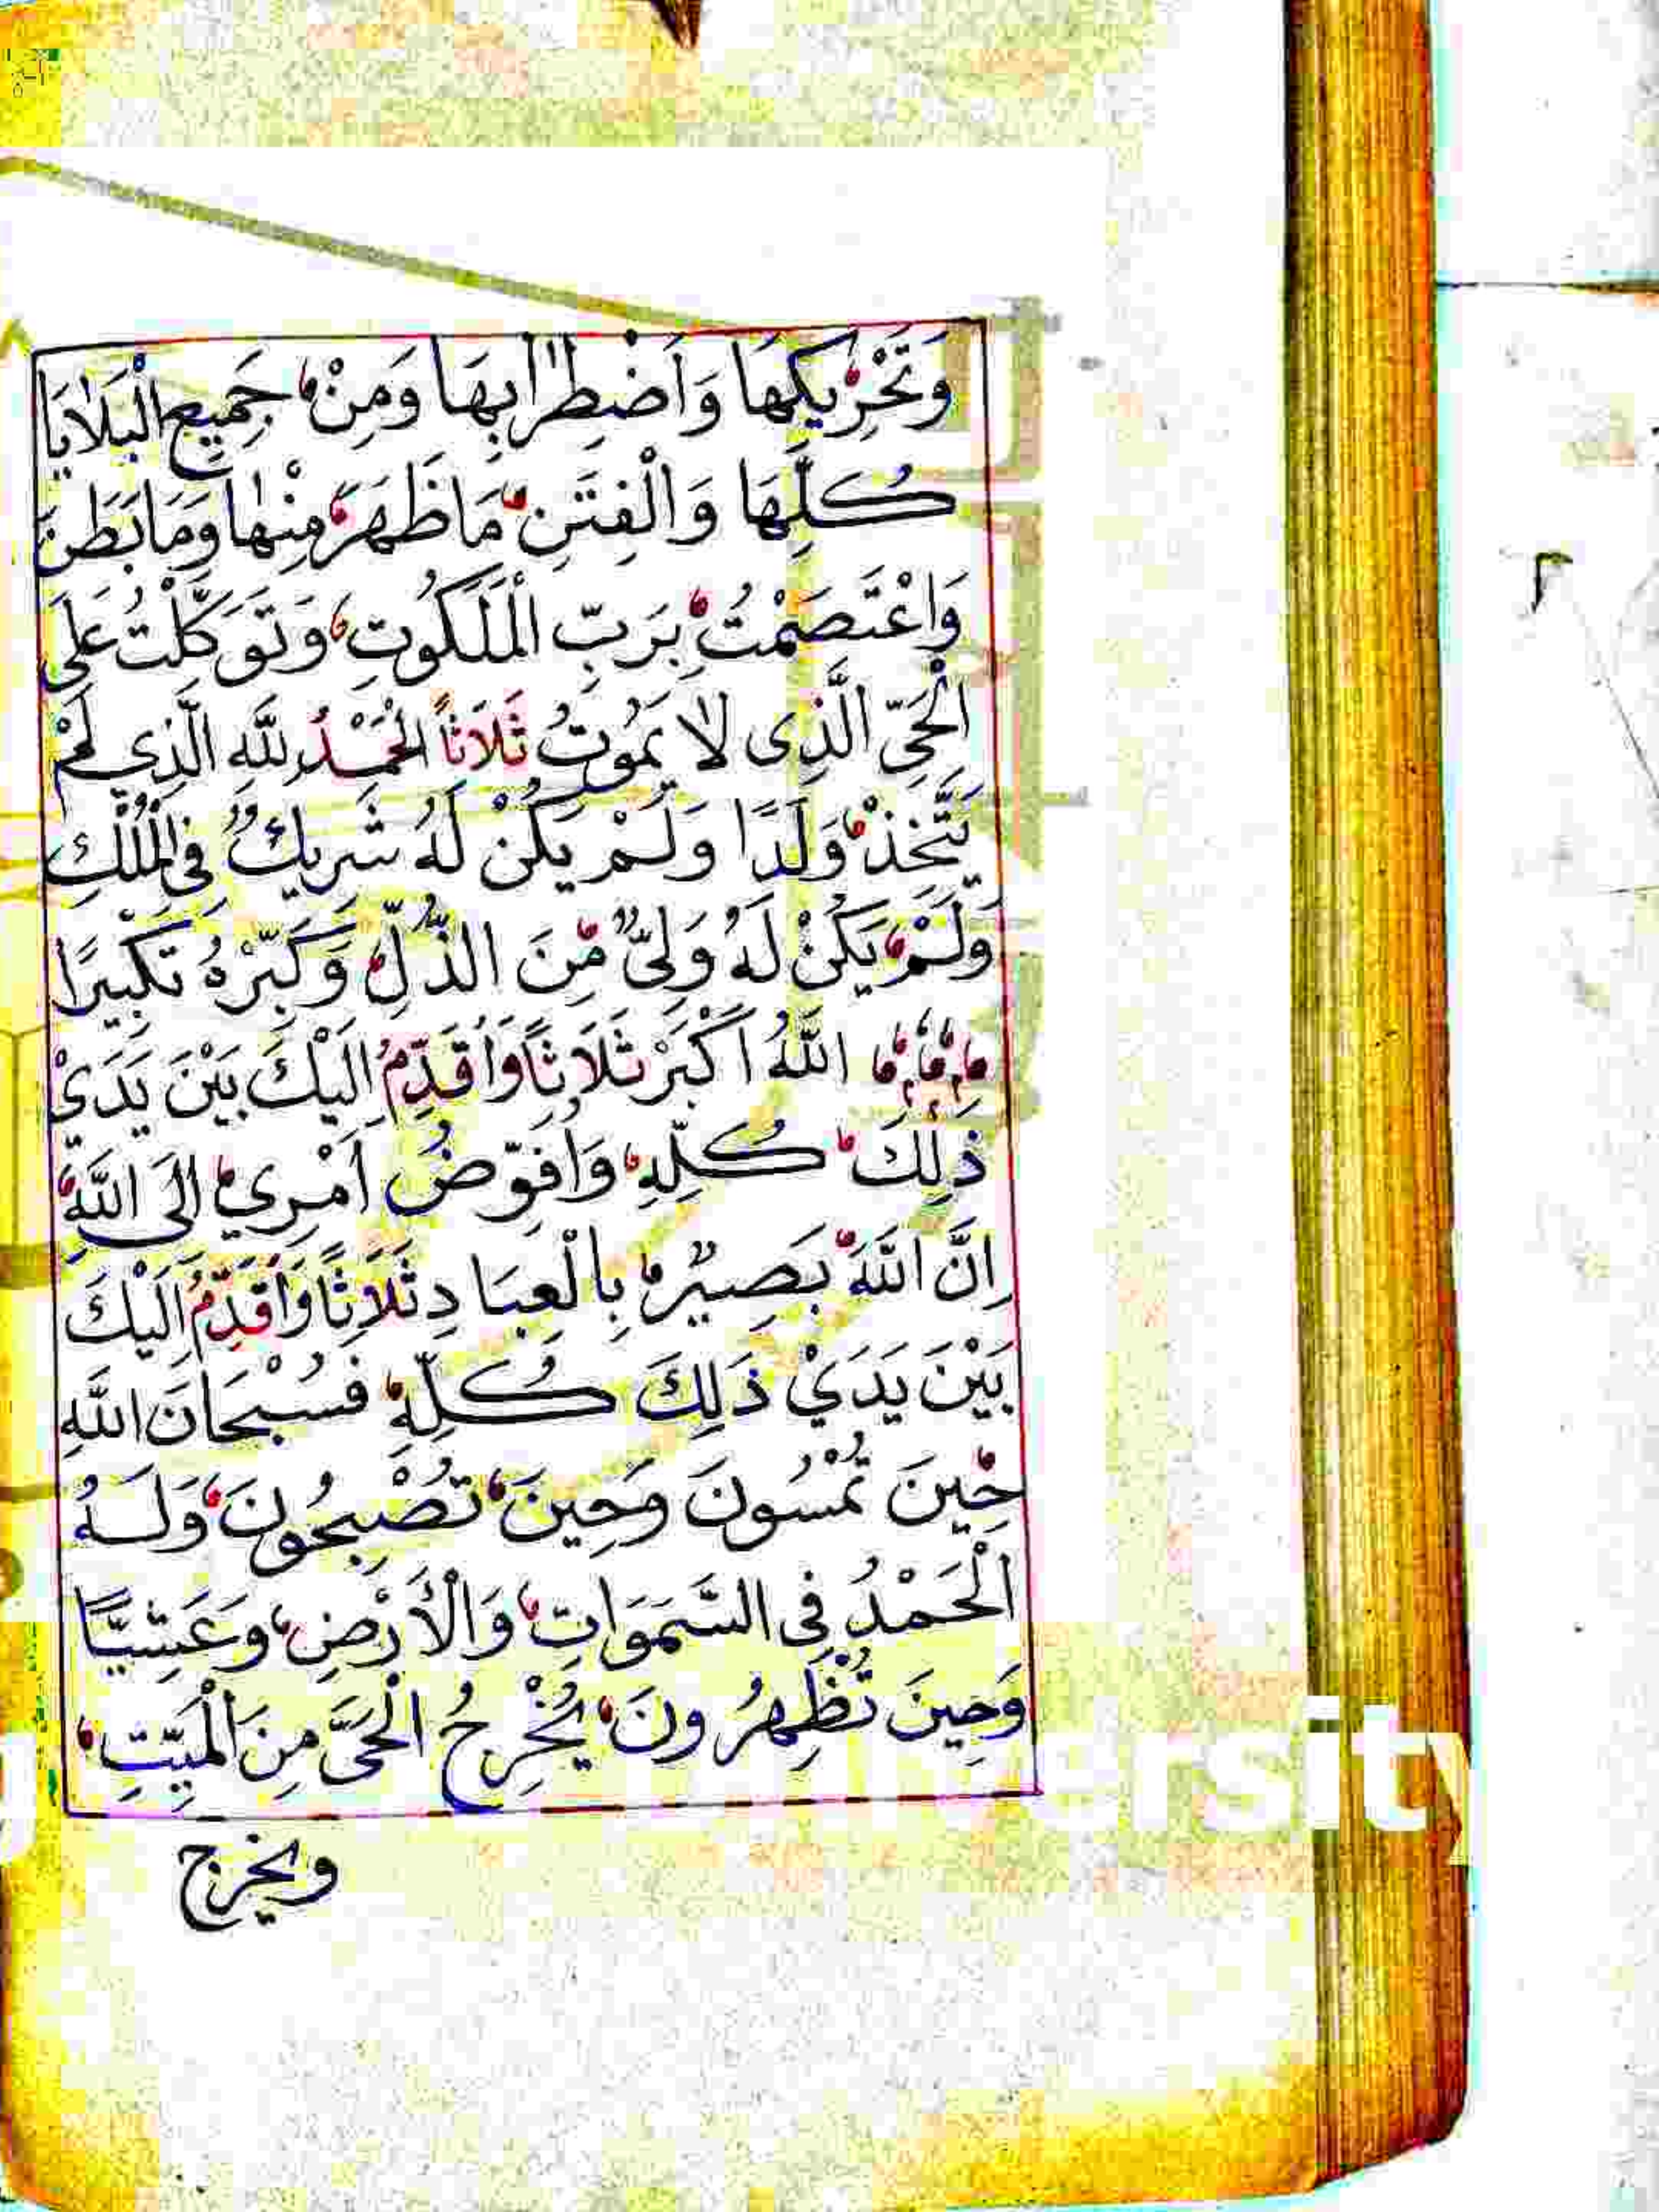 وَتَحْرِيكِهَا وَاَضْطِرَابِهَا وَمِنْ جَمِيعِ الْبَلَايَا
كُلِّهَا وَالْفِتَنِ مَا ظَهَرَ مِنْهَا وَمَا بَطَنَ
وَاعْتَصَمْتُ بِرَبِّ الْمَلَكُوتِ وَتَوَكَّلْتُ عَلَى
الْحَيِّ الَّذِى لَا يَمُوتُ ثَلَاثاً الْحَمْدُ لِلَّهِ الَّذِي لَمْ
يَتَّخِذْ وَلَدًا وَلَمْ يَكُنْ لَهُ شَرِيكٌ فِي الْمُلْكِ
وَلَمْ يَكُنْ لَهُ وَلِيٌّ مِّنَ الذُّلِّ وَكَبِّرْهُ تَكْبِيرًا
اللَّهُ اَكْبَرْ ثَلَاثاً وَاُقَدِّمُ اِلَيْكَ بَيْنَ يَدَيْ
ذٰلِكَ كُلِّهِ وَاُفَوِّضُ اَمْرِي اِلَى اللَّهِ
اِنَّ اللَّهَ بَصِيرٌ بِالْعِبَادِ ثَلَاثًا وَاُقَدِّمُ اِلَيْكَ
بَيْنَ يَدَيْ ذَلِكَ كُلِّهِ فَسُبْحَانَ اللَّهِ
حِينَ تُمْسُونَ وَحِينَ تُصْبِحُونَ وَلَهُ
الْحَمْدُ فِى السَّمَوَاتِ وَالْأَرْضِ وَعَشِيًّا
وَحِينَ تُظْهِرُونَ يُخْرِجُ الْحَىَّ مِنَ الْمَيِّتِ
ويخرج
ersity
٢